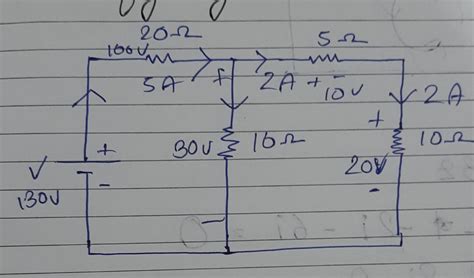 20Ω 5Ω
100V
5A + 2A + - 10V 2A
+
30V 10Ω 10Ω
+ 20V
130V - -